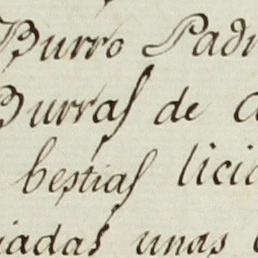 Burro Padr
Burras de
bestias licia
iadas unas